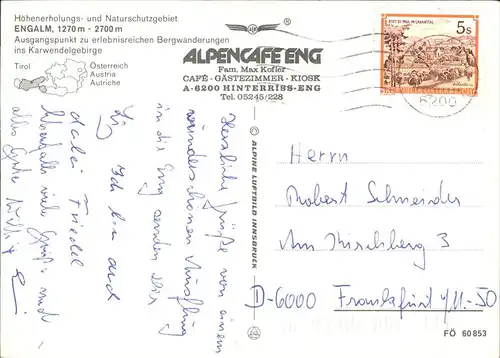 Höhenerholungs- und Naturschutzgebiet
ENGALM, 1270 m - 2700 m
Ausgangspunkt zu erlebnisreichen Bergwanderungen
ins Karwendelgebirge
Tirol
Österreich
Austria
Autriche
ALPENCAFE ENG
Fam. Max Kofler
CAFÉ - GÄSTEZIMMER - KIOSK
A-6200 HINTERRISS-ENG
Tel. 05245/228
5s
6200
© ALPINE LUFTBILD INNSBRUCK
Herrn
Robert Schneider
Am Kirschberg 3
D-6000 Frankfurt /M.-50
Herzliche Grüße von einem
wunderschönen Ausflug
in die Eng senden Dir
Ich bin auch
dabei Friedel
Ebenfalls viele Grüße und
alles Gute
FÖ 60 853